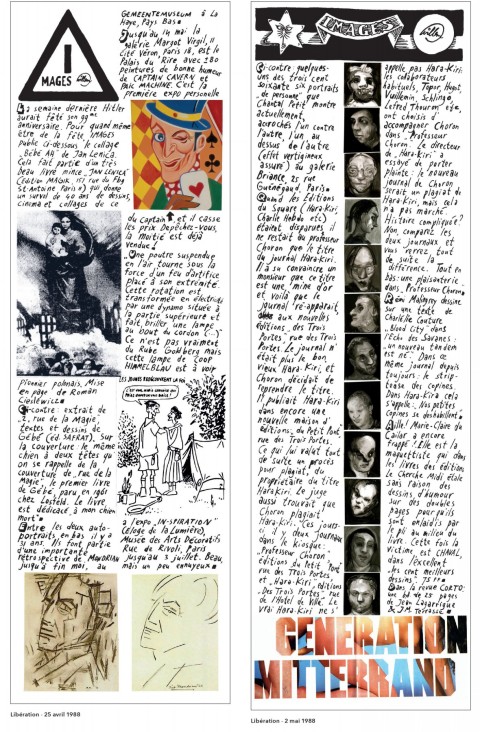 IMAGES
GEMEENTEMUSEUM à La
Haye, Pays Bas
Jusqu'au 14 mai la
galerie Margot Virgil, 11
Cité Véron, Paris 18, est le
Palais du Rire avec 180
peintures de bonne humeur
de CAPTAIN CAVERN et
PAIC MACHINE. C'est la
première expo personelle
La semaine dernière Hitler
aurait fêté son 99me
anniversaire. Pour quand même
être de la fête IMAGES
public ci-dessous le collage
"Bébé AH" de Jan Lenica.
Cela fait partie d'un très
beau livre mince, "JAN LENICA"
(édition MAGIK, 157 rue du Fbg
St-Antoine Paris) qui donne
un survol de 40 ans de dessins,
cinéma et collages de ce
du Captain et il casse
les prix. Dépêchez-vous,
la moitié est déjà
vendue.
Une poutre suspendue
en l'air tourne sous la
force d'un feu d'artifice
placé à son extrémité.
Cette rotation est
transformée en électricité
par une dynamo située à
la partie supérieure et
fait briller une lampe
au bout du cordon (...)
Ce n'est pas vraiment
du Rube Goldberg mais
cette lampe de COOP
HIMMELBLAU est à voir
pionnier polonais. Mise
en page de Roman
Cieslewicz
Ci-contre: extrait de
"2, rue de la Magie",
textes et dessins de
Gébé (éd SAFRAT). Sur
la couverture le même
chien à deux têtes qu'
on se rappelle de la
couverture de "rue de la
Magie", le premier livre
de Gébé, paru en 1960
chez Losfeld. Le livre
est dédicacé "à mon chien
mort"
Entre les deux auto-
portraits en bas il y a
31 ans. Ils font partie
d'une importante
rétrospective de MONDRIAN
jusqu'à fin mai, au
à l'expo IN-SPIRATION
(éloge de la Lumière),
Musée des Arts Décoratifs
Rue de Rivoli, Paris
jusqu'au 3 juillet. Beau,
mais un peu ennuyeux
Libération - 25 avril 1988
IMAGES
Ci-contre quelques-
uns des trois cent
soixante six portraits
"de personne" que
Chantal Petit montre
actuellement,
accrochés l'un contre
l'autre, l'un au
dessus de l'autre
(effet vertigineux
assuré) au galerie
Briance, 23 rue
Guénégaud, Paris
Quand les Editions
du Square (Hara-Kiri,
Charlie Hebdo etc)
étaient disparues, il
ne restait au professeur
Choron que le titre
du journal Hara-Kiri.
Il a su convaincre un
monsieur que ce titre
est une mine d'or
et voilà que le
journal ré-apparait,
aux nouvelles
éditions "des Trois
Portes", rue des Trois
Portes. Le journal n'
était plus le bon
vieux Hara-Kiri, et
Choron décidait de
reprendre le titre.
Il publiait Hara-Kiri
dans encore une
nouvelle maison d'
éditions: du Petit Toné,
rue des Trois Portes.
Ce qui lui valut tout
de suite un procès
pour plagiat, du
propriétaire du titre
Hara-Kiri. Le juge
aussi trouvait que
Choron plagiait
Hara-Kiri. Ces jours-
ci il y a deux journaux
dans le kiosque:
"Professeur Choron",
éditions du Petit Toné,
rue des Trois Portes
et "Hara-Kiri", éditions
"Des Trois Portes", rue
de l'Hôtel de Ville. Le
vrai Hara-Kiri ne s'
appelle pas Hara-Kiri:
les collaborateurs
habituels, Topor, Hugot,
Vuillemin, Schlingo,
Lefred Thouron etc,
ont choisi d'
accompagner Choron
dans "Professeur
Choron". Le directeur
de "Hara-Kiri" a
essayé de porter
plainte: le nouveau
journal de Choron
serait un plagiat di
Hara-Kiri, mais cela
n'a pas marché.
Histoire compliquée?
Non, comparez les
deux journaux et
vous verrez tout
de suite la
différence. Tout en
bas: une plaisanterie
dans "Professeur Choron"
Rémi Malingrey dessine
sur une texte de
Charlélie Couture
"Blood City" dans
l'Echo des Savanes:
un nouveau tandem
est né. Dans ce
même journal depuis
toujours le strip-
tease des copines.
Dans Hara-Kiri cela
s'appelle: "Nos petites
copines se déshabillent"
Aïlle! Marie-Claire du
Cailar a encore
frappé! Elle est la
maquettiste qui dans
les livres des éditions
Le Cherche Midi étale
sans raison des
dessins d'humour
sur des doubles
pages pour qu'ils
sont enlaidis par
le pli au milieu du
livre. Cette fois la
victime, est CHAVAL,
dans l'excellent
"Les cent meilleurs
dessins", 75 Fr
Dans la revue CORTO:
une bd de 25 pages
de Jean Lagarrigue
et J.M. Teirasse
GENERATION
MITTERRAND
Libération - 2 mai 1988